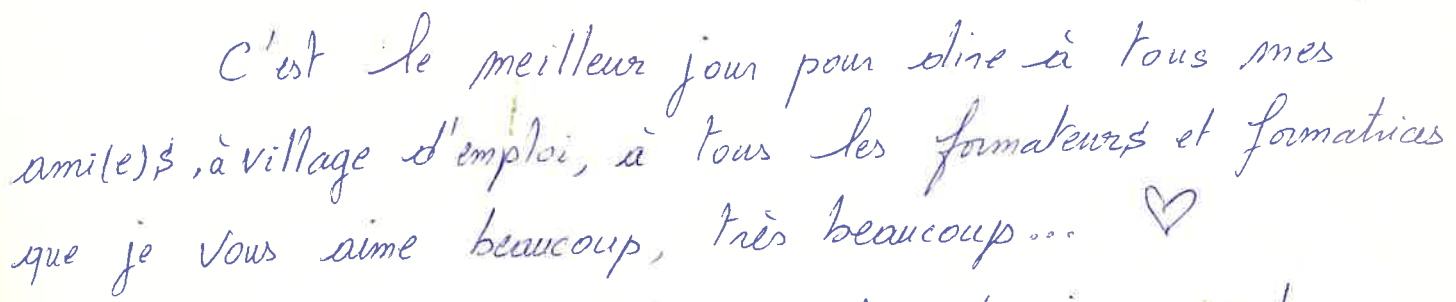 C'est le meilleur jour pour dire à tous mes
ami(e)s, à village d'emploi, à tous les formateurs et formatrices
que je vous aime beaucoup, très beaucoup... ♡